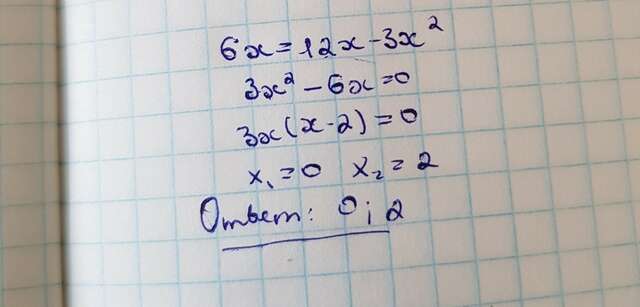 6x=12x-3x²
3x²-6x=0
3x(x-2)=0
x₁=0 x₂=2
Ответ: 0; 2